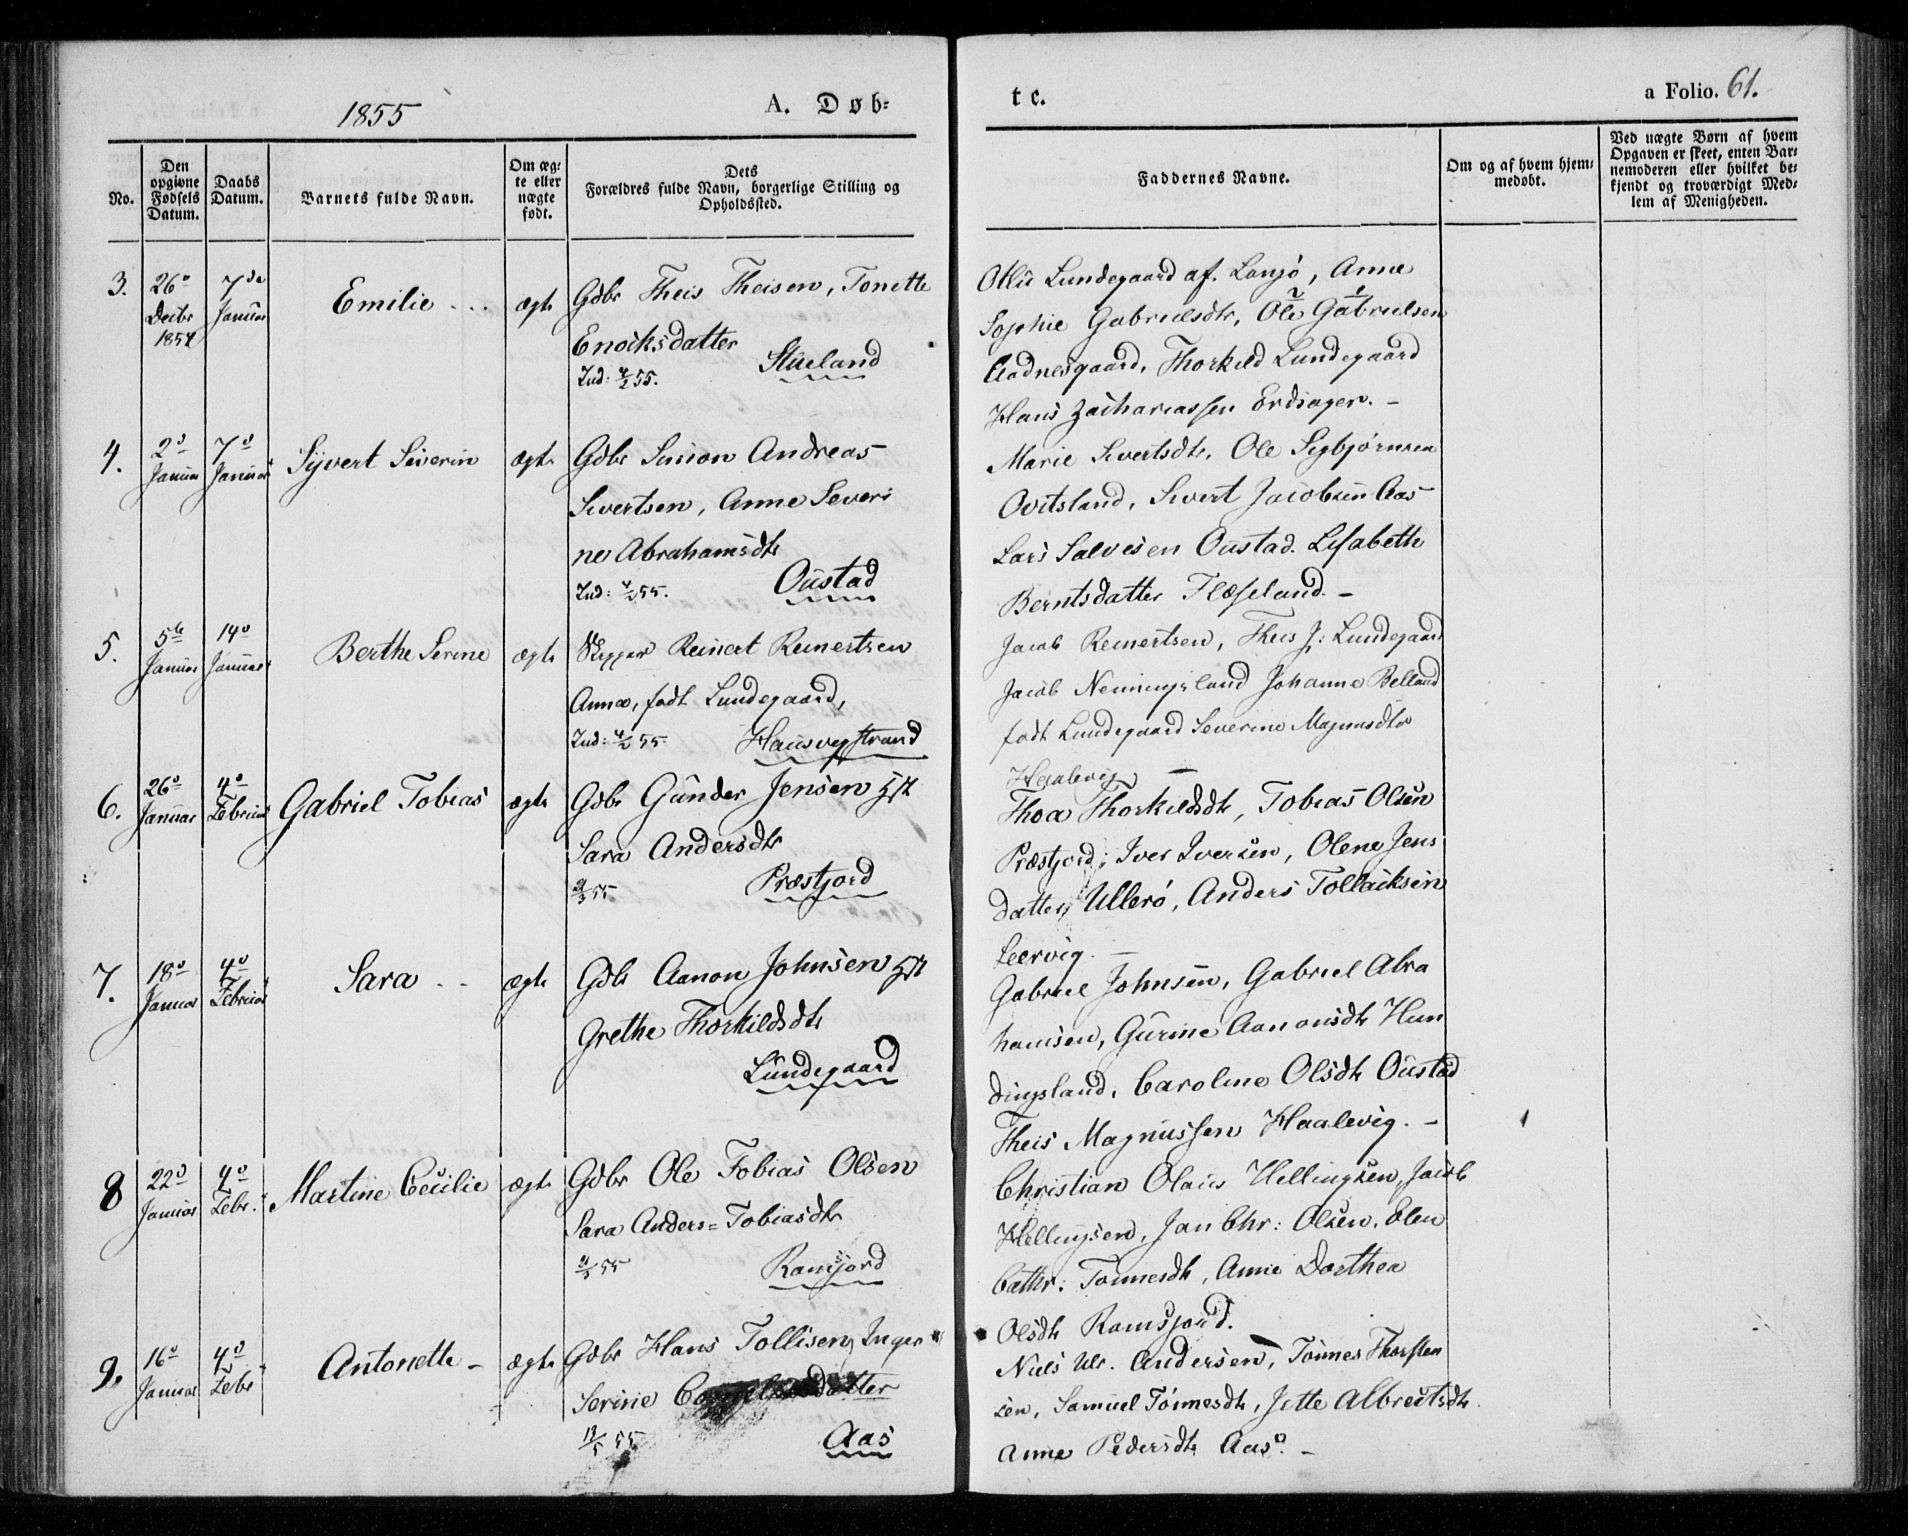 1855
A. Døb-
te.
a Folio. 61.
No.
Den opgivne Fødsels Datum.
Daabs Datum.
Barnets fulde Navn.
Om ægte eller uægte født.
Dets Forældres fulde Navn, borgerlige Stilling og Opholdssted.
Faddernes Navne.
Om og af hvem hjemmedøbt.
Ved uægte Børn af hvem Opgaven er skeet, enten Barnemoderen eller hvilket bekjendt og troværdigt Medlem af Menigheden.
3. 26de Decbr 1854
7de Januar
Emilie
ægte
Gdbr Theis Theisen, Tonette
Enoksdatter
Ind: 4/2 55. Stueland
Lundegaard af Lanjø, Anne
Sophie Gabrielsdtr, Ole Gabrielsen
Aadnesgaard, Thorkild Lundegaard
Hans Zachariassen
4. 2d Januar
7d Januar
Syvert Severin
ægte
Gdbr Simon Andreas
Sivertsen, Anne Severi
ne Abrahamsdtr
Ind: 4/2 55. Oustad
Marie Sivertsdtr, Ole Sigbjørnsen
Ovitsland, Sivert Jacobsen Aas
Lars Salvesen Oustad. Lisabeth
Berntsdatter Flæseland. -
5. 5te Januar
14d Januar
Berthe Serine
ægte
Skipper Reinert Reinertsen
Anna, født Lundegaard,
Ind: 4/2 55. Hausvigstrand
Jacob Reinertsen, Theis J: Lundegaard
Jacob Nenningsland Johanne Belland
født Lundegaard Severine Magnusdtr
Haalevig -
6. 26d Januar
4d Februar
Gabriel Tobias
ægte
Gdbr Gunder Jensen
Sara Andersdtr
4/3 55 Præstjord
Thoa Thorkildsdtr, Tobias Olsen
Præstjord, Iver Iversen, Olene Jens
datter Ullerø, Anders Tollaksen
Leervig. -
7. 18d Januar
4d Februar
Sara
ægte
Gdbr Aanon Johnsen
Grethe Thorkildsdtr
Lundegaard
Gabriel Johnsen, Gabriel Abra
hamsen, Gurine Aanonsdtr Hun
dingsland, Caroline Olsdtr Oustad
Theis Magnussen Haalevig. -
8 22d Januar
4d Febr.
Martine Cecilie
ægte
Gdbr Ole Tobias Olsen
Sara Anders=Tobiasdtr
4/3 55 Ramsjord
Christian Olaus Hellingsen, Jacob
Hellingsen, Jan Chr: Olsen, Elen
Cathr: Tønnesdtr, Anne Dorthea
Olsdtr Ramsjord.
9. 16d Januar
4d Febr
Antonette -
ægte
Gdbr Hans Tollisen, Inger
Serine
13/5 55 Aas
Niels Ulr. Andersen, Tønnes Thorsten
sen, Samuel Tønnesdtr, Jette Albrectsdtr
Anne Pedersdtr Aas. -